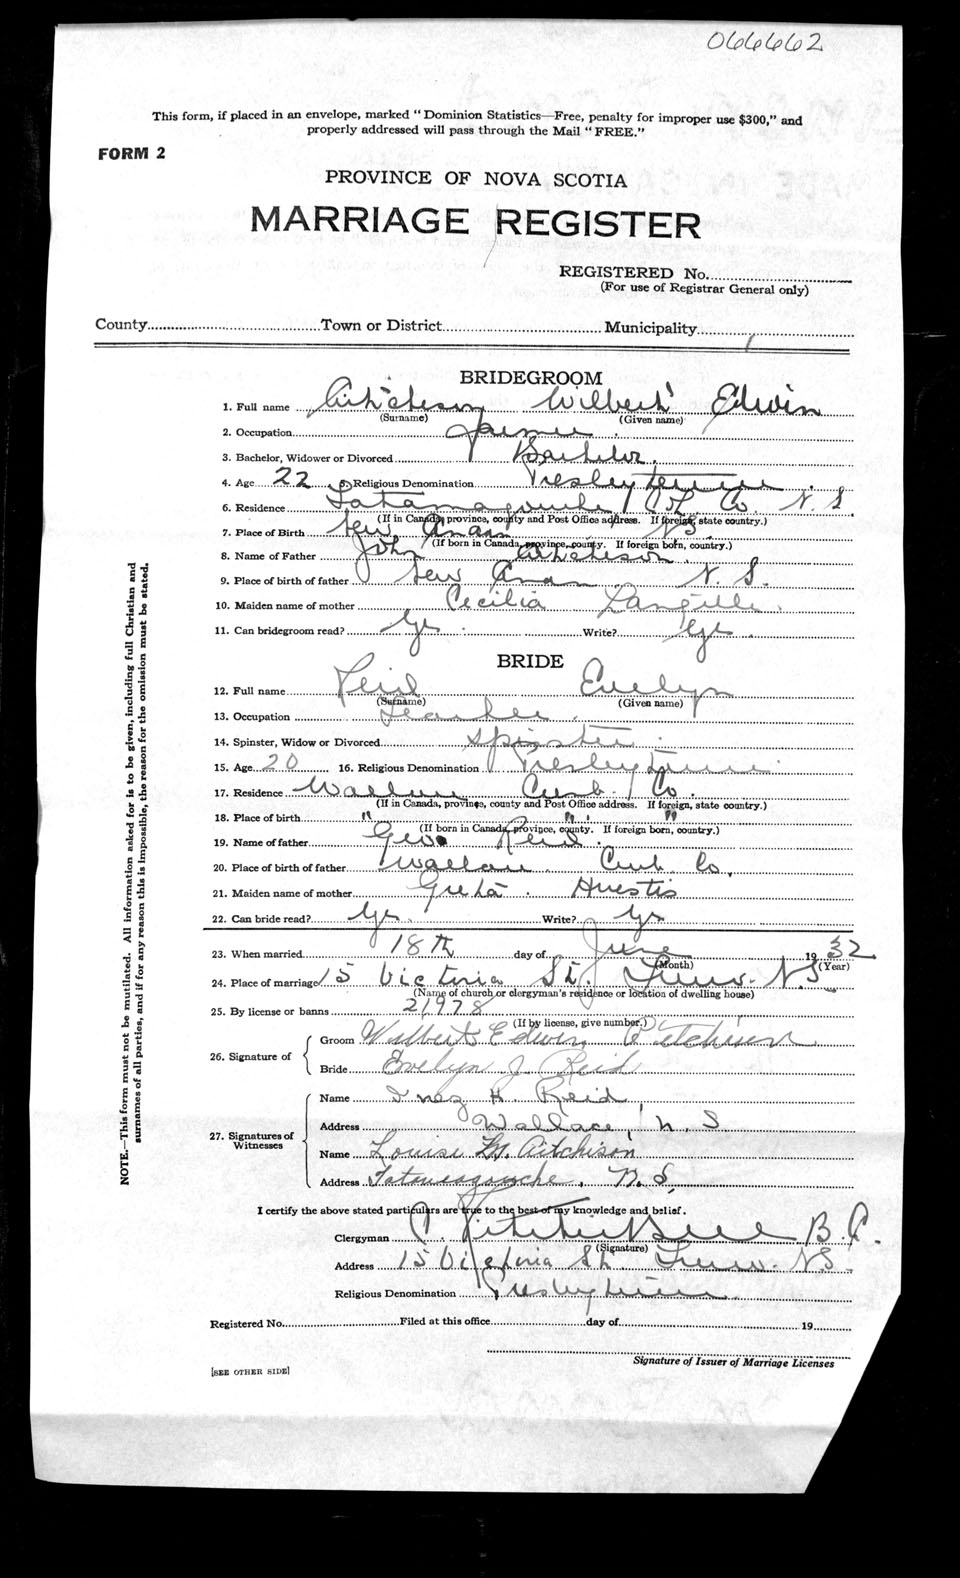 066662
This form, if placed in an envelope, marked "Dominion Statistics—Free, penalty for improper use $300," and
properly addressed will pass through the Mail "FREE."
FORM 2
PROVINCE OF NOVA SCOTIA
MARRIAGE REGISTER
REGISTERED No.
(For use of Registrar General only)
County Town or District Municipality
BRIDEGROOM
1. Full name Aitcheson Wilbert Edwin
(Surname) (Given name)
2. Occupation Farmer
3. Bachelor, Widower or Divorced Bachelor
4. Age 22 5. Religious Denomination Presbyterian
6. Residence Tatamagouche Col. Co. N.S.
(If in Canada, province, county and Post Office address. If foreign, state country.)
7. Place of Birth New Anan N.S.
(If born in Canada, province, county. If foreign born, country.)
8. Name of Father John Aitcheson
9. Place of birth of father New Anan N.S.
10. Maiden name of mother Cecilia Langille
11. Can bridegroom read? Yes Write? Yes
BRIDE
12. Full name Reid Evelyn
(Surname) (Given name)
13. Occupation Teacher
14. Spinster, Widow or Divorced Spinster
15. Age 20 16. Religious Denomination Presbyterian
17. Residence Wallace Cumb. Co.
(If in Canada, province, county and Post Office address. If foreign, state country.)
18. Place of birth " " "
(If born in Canada, province, county. If foreign born, country.)
19. Name of father Geo Reid
20. Place of birth of father Wallace Cumb Co.
21. Maiden name of mother Greta Huestis
22. Can bride read? Yes Write? Yes
23. When married 18th day of June 1932
(Month) (Year)
24. Place of marriage 15 Victoria St. Truro. N.S.
(Name of church or clergyman's residence or location of dwelling house)
25. By license or banns 21978
(If by license, give number.)
26. Signature of Groom Wilbert Edwin Aitchison
Bride Evelyn J. Reid
27. Signatures of Witnesses Name Inez H. Reid
Address Wallace, N.S.
Name Louise M. Aitchison
Address Tatamagouche, N.S.
I certify the above stated particulars are true to the best of my knowledge and belief.
Clergyman B.A.
(Signature)
Address 15 Victoria St. Truro. N.S.
Religious Denomination Presbyterian
Registered No. Filed at this office day of 19
Signature of Issuer of Marriage Licenses
[SEE OTHER SIDE]
NOTE.—This form must not be mutilated. All information asked for is to be given, including full Christian and
surnames of all parties, and if for any reason this is impossible, the reason for the omission must be stated.